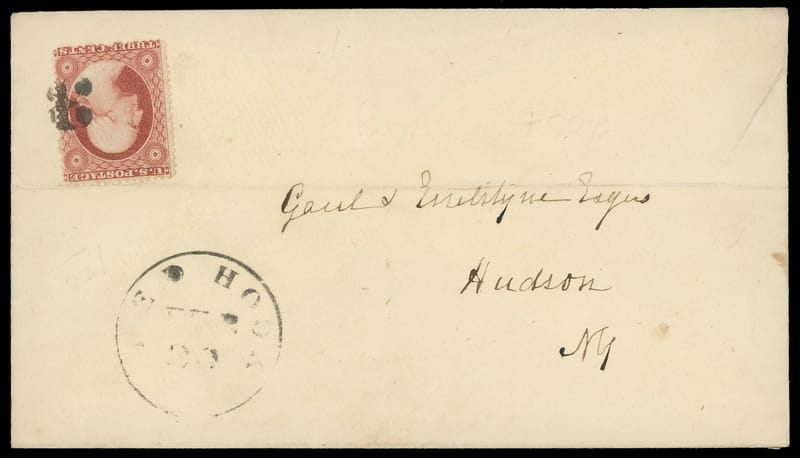 THREE CENTS
U.S. POSTAGE
Gaul & Esselstyne Esqrs
Hudson
NY
HOOK